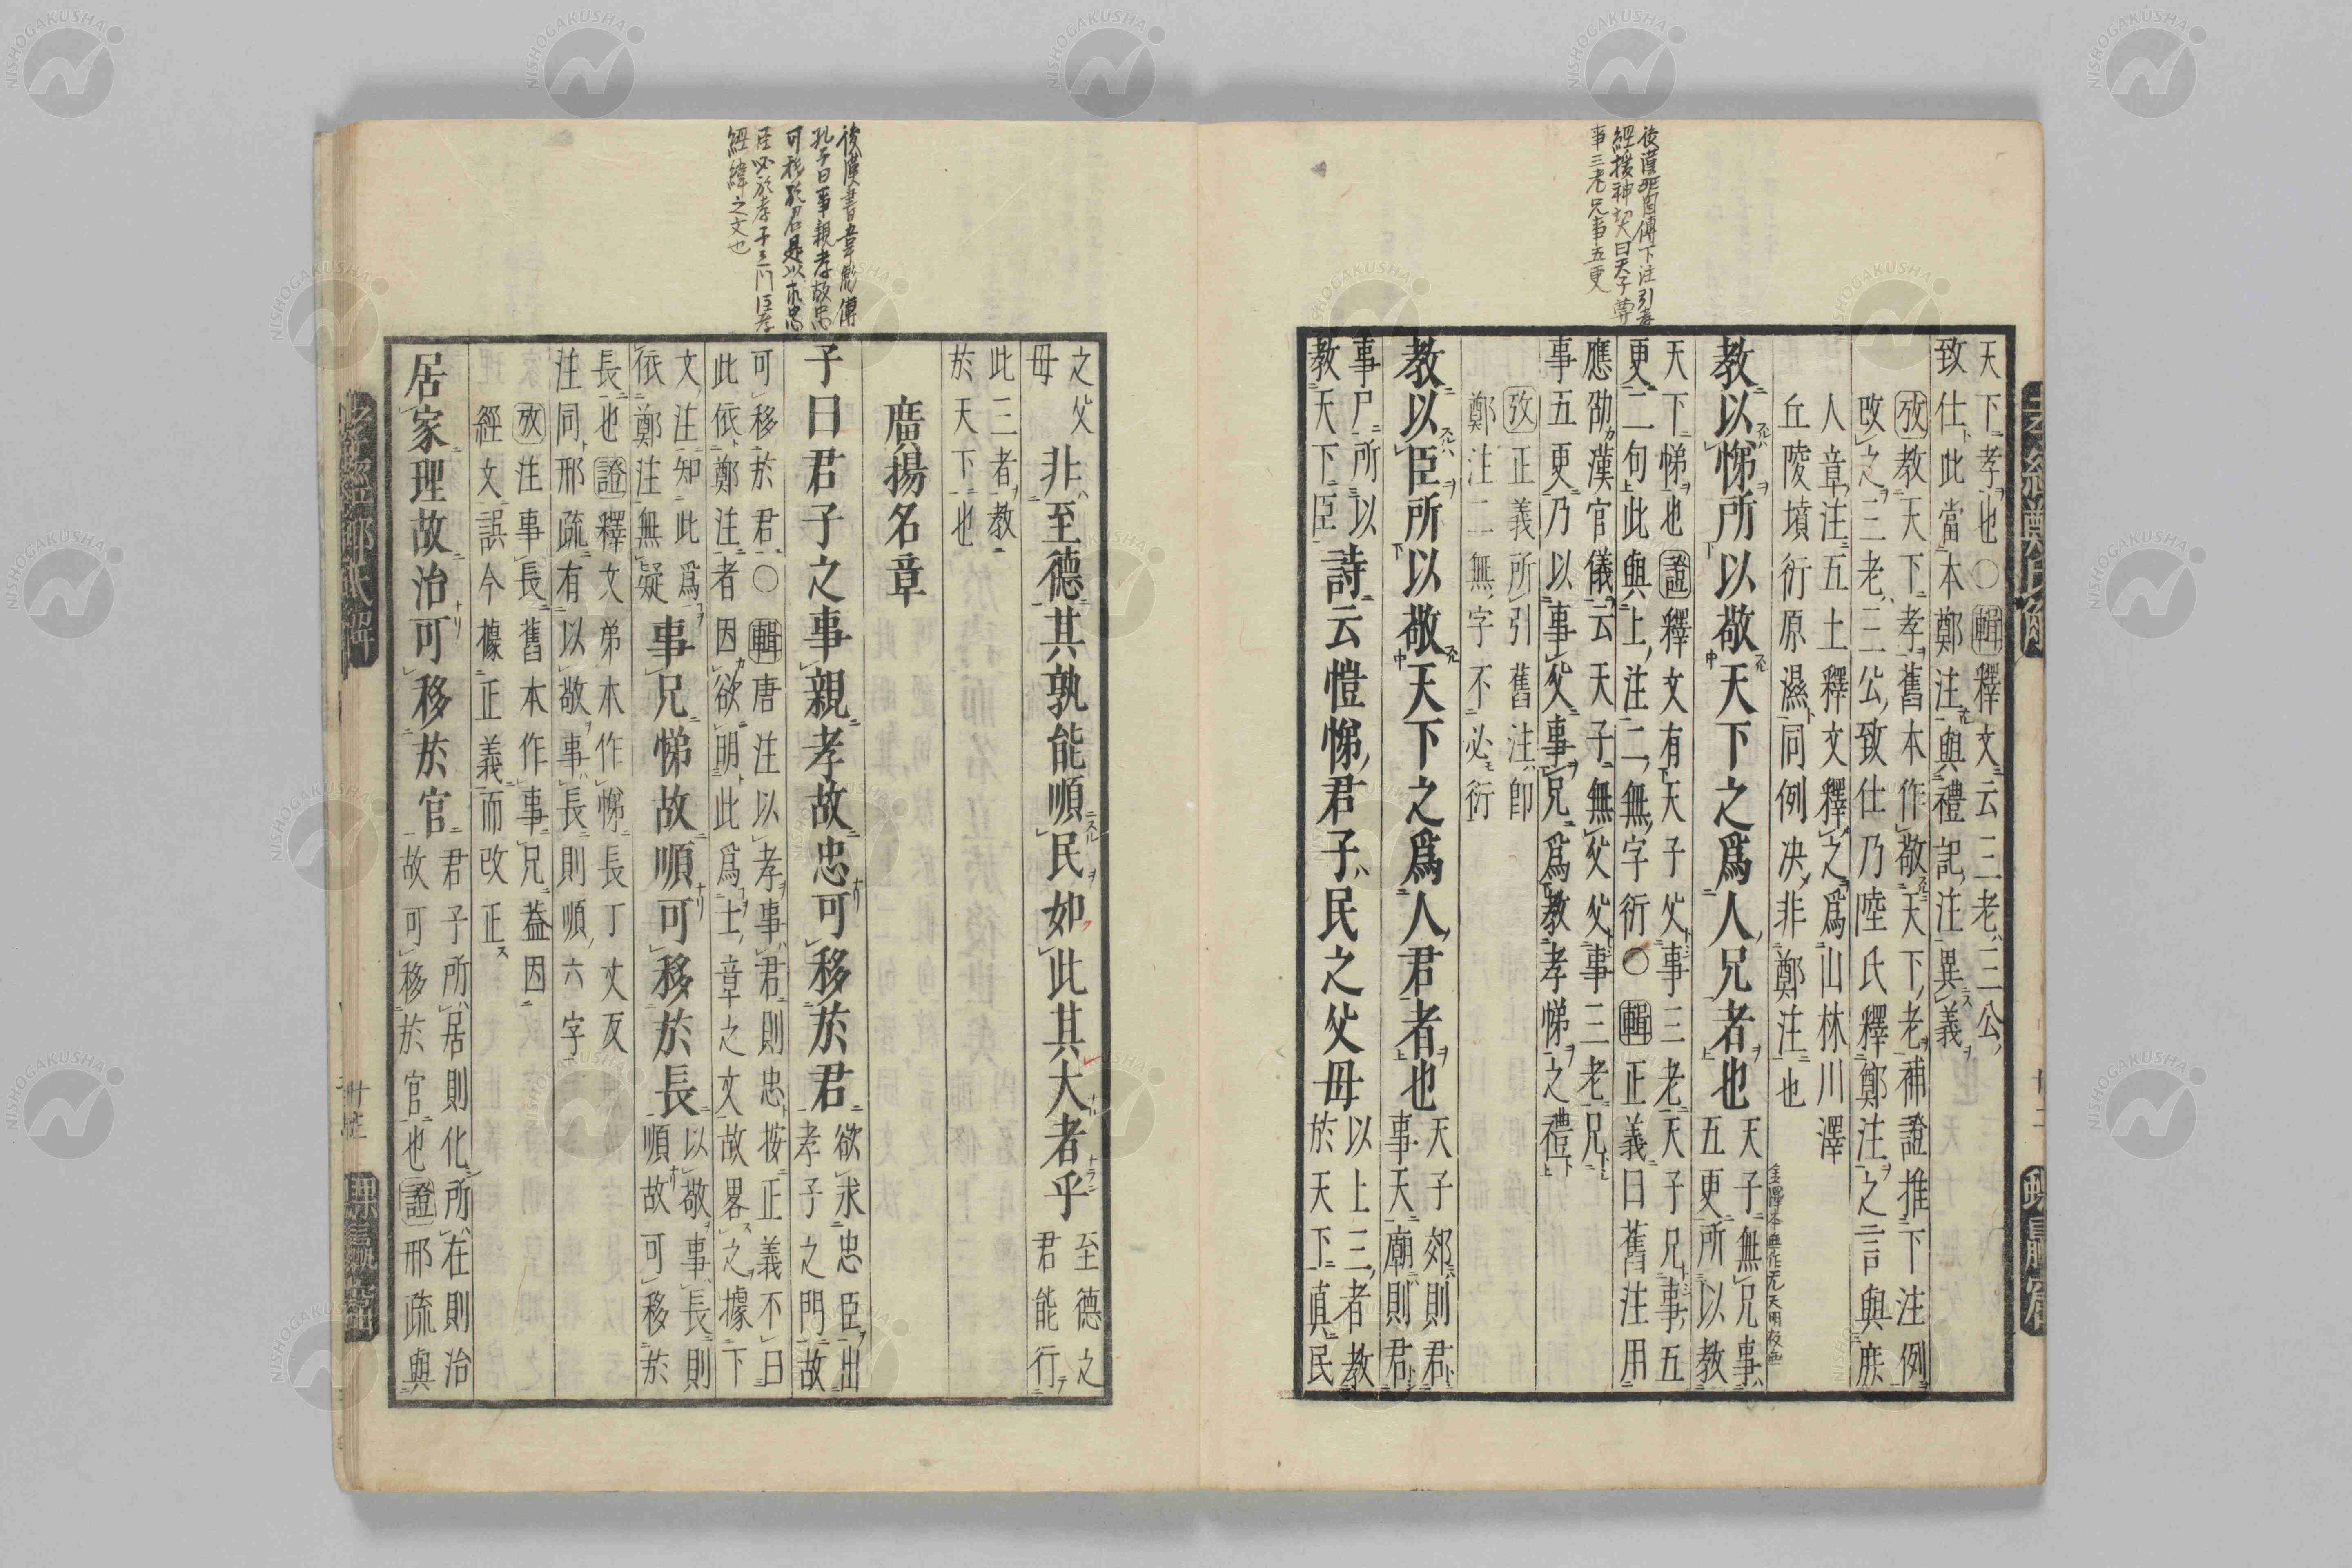 後漢
經援神契曰天子尊
事三老兄事五更
天下孝也〇輯釋文云三老三公
致仕此當本鄭注與禮記注異義
攷教天下孝舊本作敬天下老補證推下注例
改之三老三公致仕乃陸氏釋鄭注之言與庶
人章注五土釋文釋之爲山林川澤
丘陵墳衍原濕同例決非鄭注也
教以悌所以敬天下之爲人兄者也
天子無兄事
五更所以教
天下悌也證釋文有天子父事三老天子兄事五
更二句此與上注二無字衍〇輯正義曰舊注用
應劭漢官儀云天子無父父事三老兄
事五更乃以事父事兄爲教孝悌之禮
攷正義所引舊注即
鄭注二無字不必衍
教以臣所以敬天下之爲人君者也
天子郊則君
事天廟則君
事尸所以
教天下臣
詩云愷悌君子民之父母
以上三者教
於天下眞民
之父
母
非至德其孰能順民如此其大者乎
至德之
君能行
此三者教
於天下也
廣揚名章
後漢書韋彪傳
孔子曰事親孝故忠
可移於君是以求忠
臣必於孝子之門
經緯之文也
子曰君子之事親孝故忠可移於君
欲求忠臣出
孝子之門故
可移於君〇輯唐注以孝事君則忠按正義不曰
此依鄭注者因欲明此爲士章之文故畧之據下
文注知此爲
依鄭注無疑
事兄悌故順可移於長
以敬事長則
順故可移於
長也證釋文弟本作悌長丁丈反
注同邢疏有以敬事長則順六字
攷注事長舊本作事兄葢因
經文誤今據正義而改正
居家理故治可移於官
君子所居則化所在則治
故可移於官也證邢疏與